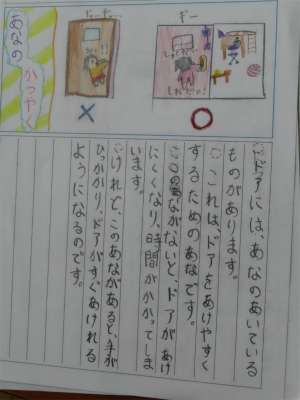 あなの
かつやく
ギー
○ドアには、あなのあいている
ものがあります。
○これは、ドアをあけやすく
するためのあなです。
○このあながないと、ドアがあけ
にくくなり、時間がかかってしま
います。
○けれど、このあながあると、手が
ひっかかり、ドアがすぐあけれる
ようになるのです。